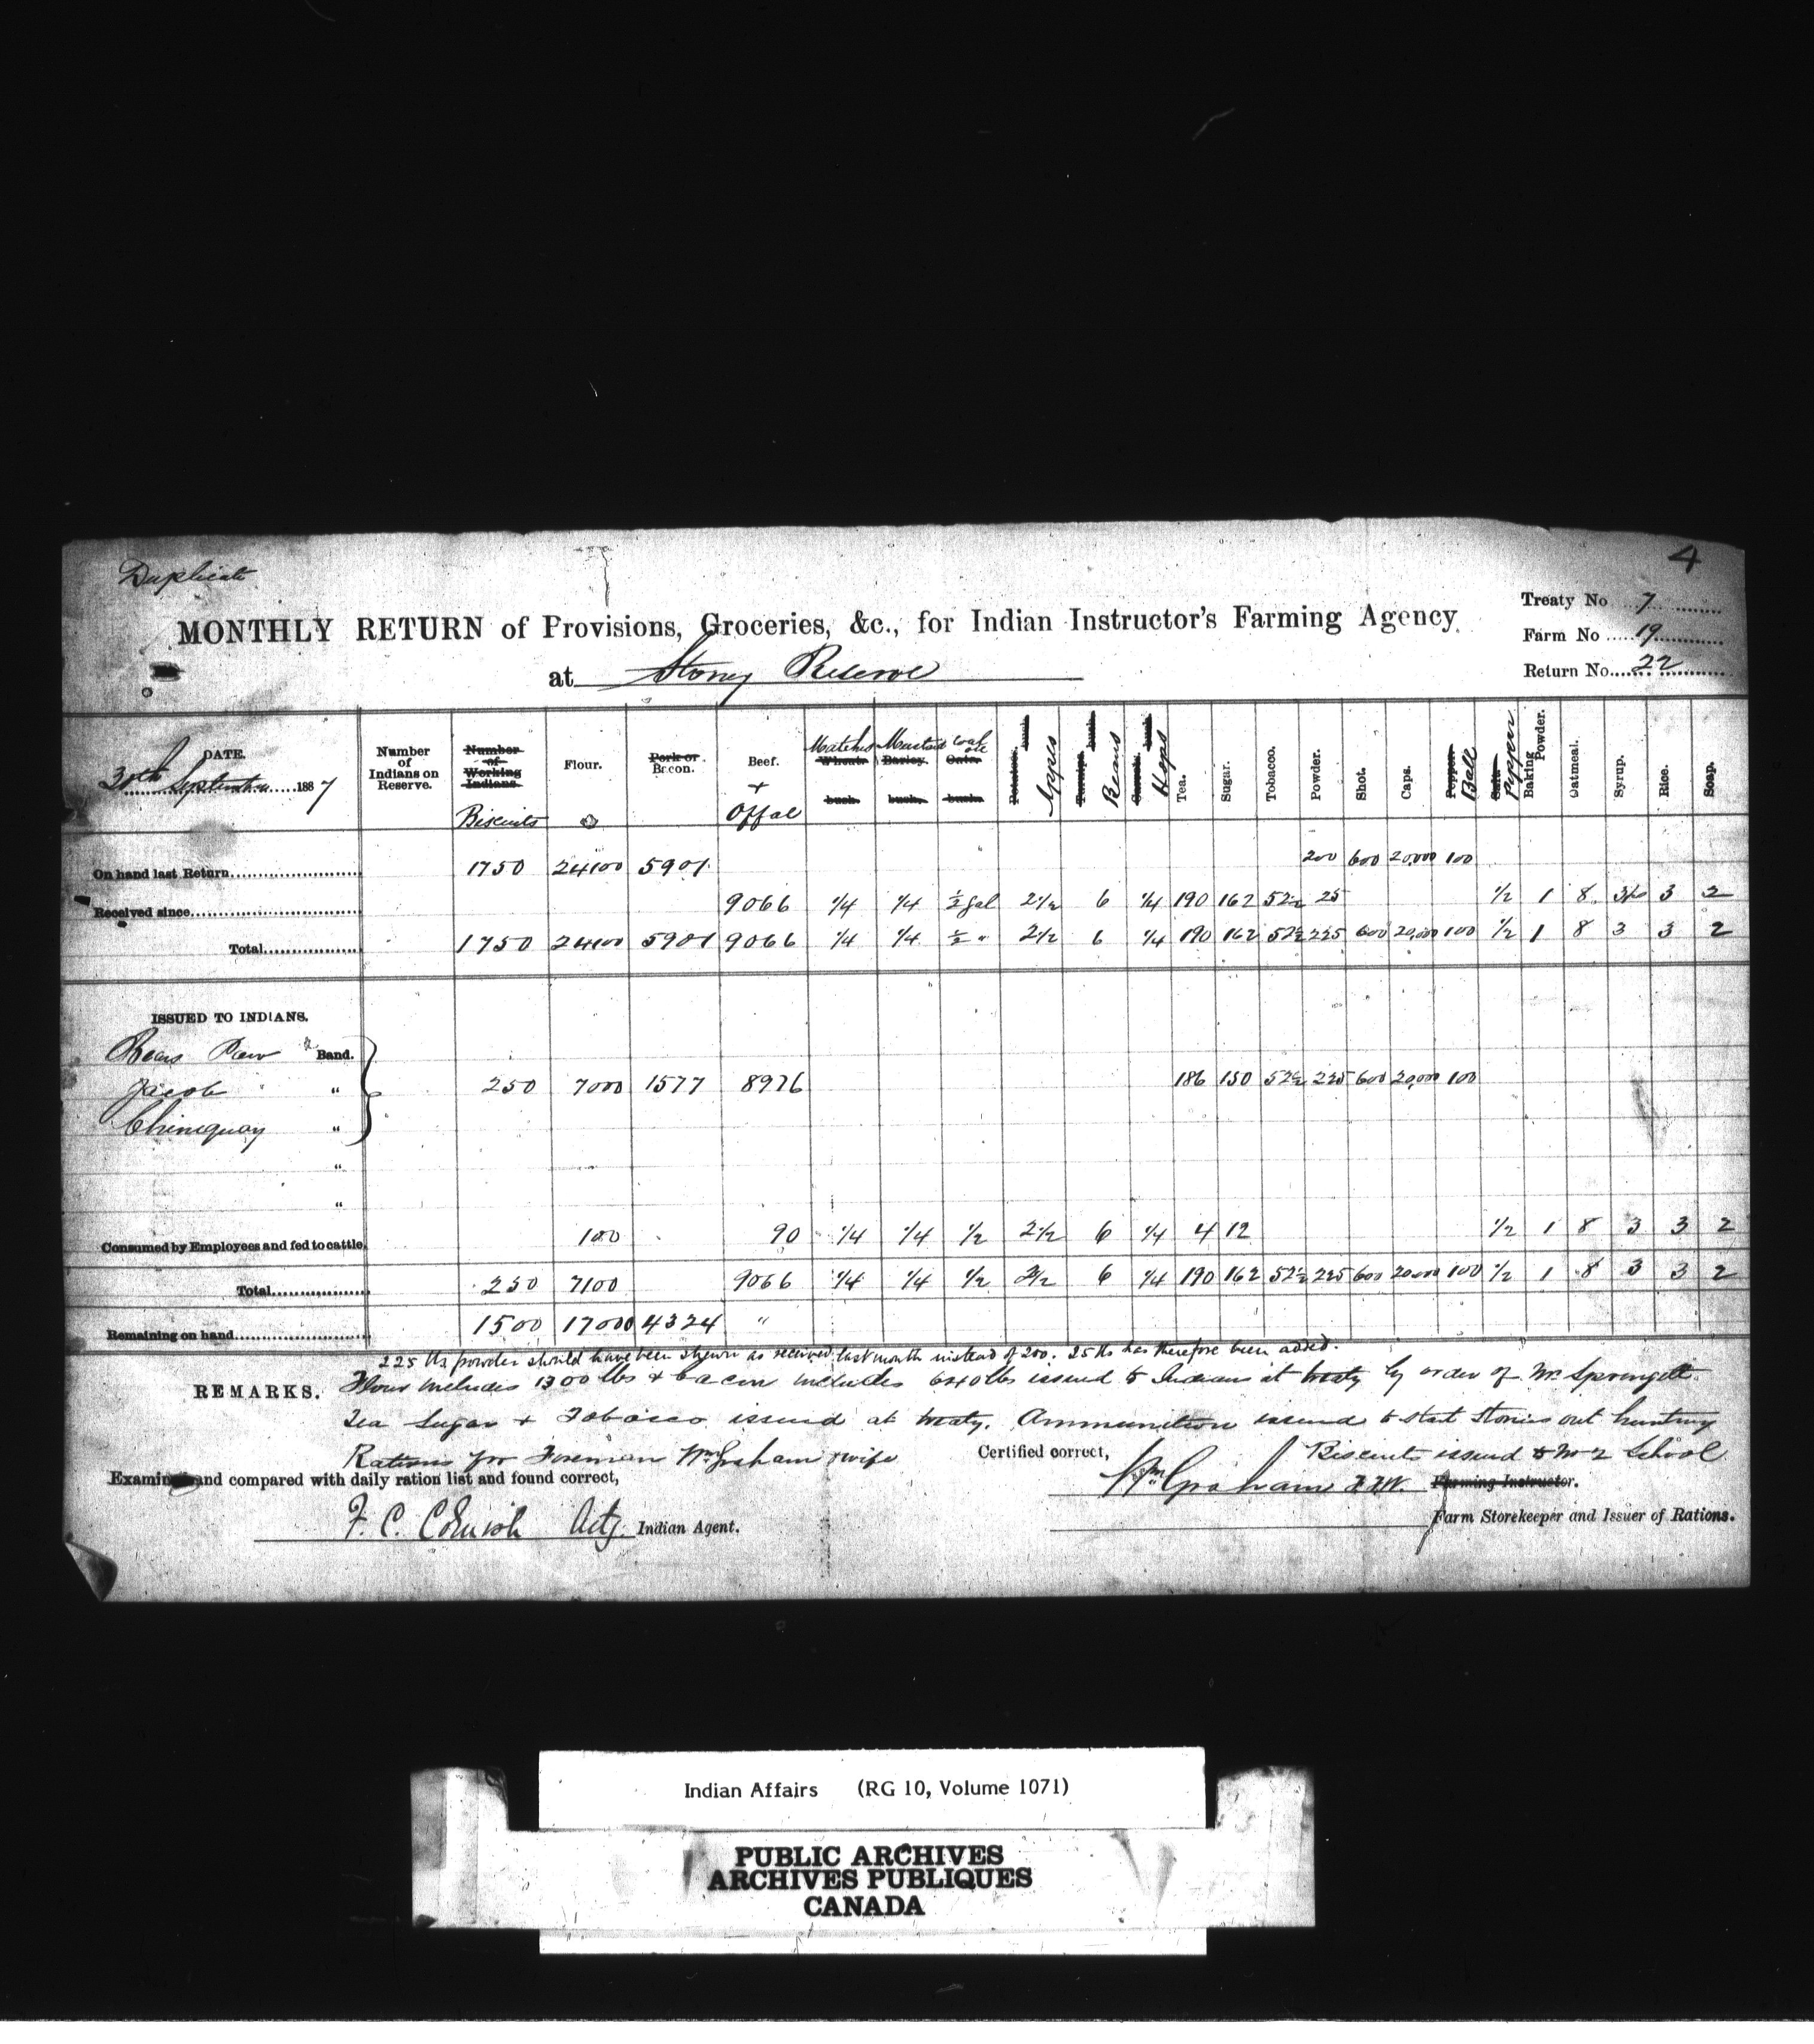 4
Duplicate
MONTHLY RETURN of Provisions, Groceries, &c., for Indian Instructor's Farming Agency
at Stoney Reserve
Treaty No 7
Farm No 19
Return No. 22
DATE.
30th September 1887
Number of Indians on Reserve.
Number of Working Indians. Biscuits
Flour.
Pork or Bacon.
Beef. + Offal
Matches Wheat. bush.
Mustard Barley. bush.
Coal oil Oats. bush.
Potatoes. bush.
Turnips. bush. Beans
Carrots. bush. Hops
Tea.
Sugar.
Tobacco.
Powder.
Shot.
Caps.
Pepper Ball
Salt Pepper
Baking Powder.
Oatmeal.
Syrup.
Rice.
Soap.
On hand last Return 1750 24100 5901 200 600 20,000 100
Received since 9066 1/4 1/4 1/2 gal 2 1/2 6 1/4 190 162 52 1/2 25 1/2 1 8 3 3 2
Total 1750 24100 5901 9066 1/4 1/4 1/2 " 2 1/2 6 1/4 190 162 52 1/2 225 600 20,000 100 1/2 1 8 3 3 2
ISSUED TO INDIANS.
Bears Paw Band.
Jacob " 250 7000 1577 8976 186 150 52 1/2 225 600 20,000 100
Chiniquay "
"
"
Consumed by Employees and fed to cattle 100 90 1/4 1/4 1/2 2 1/2 6 1/4 4 12 1/2 1 8 3 3 2
Total 250 7100 9066 1/4 1/4 1/2 2 1/2 6 1/4 190 162 52 1/2 225 600 20000 100 1/2 1 8 3 3 2
Remaining on hand 1500 17000 4324 "
225 lbs powder should have been shewn as received last month instead of 200. 25 lbs has therefore been added.
REMARKS. Flour includes 1300 lbs & bacon includes 640 lbs issued to Indians at treaty by order of Mr. Springett.
Tea Sugar & Tobacco issued at treaty. Ammunition issued to start Stonies out hunting
Rations for Foreman Wm. Graham & wife
Biscuits issued to No 2 School
Certified correct,
Examined and compared with daily ration list and found correct,
Wm. Graham Farming Instructor.
F. C. Cornish Actg. Indian Agent.
Farm Storekeeper and Issuer of Rations.
Indian Affairs (RG 10, Volume 1071)
PUBLIC ARCHIVES
ARCHIVES PUBLIQUES
CANADA